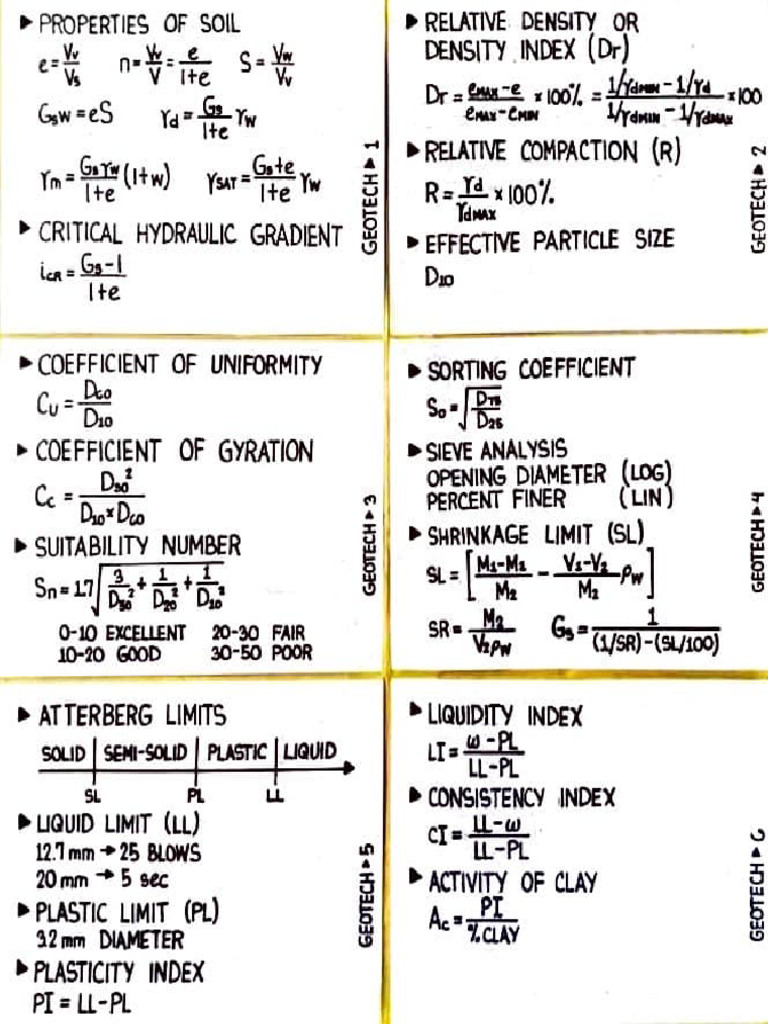 ▶ PROPERTIES OF SOIL
e = Vv/Vs   n = Vv/V = e/(1+e)   S = Vw/Vv
Gsw = eS   γd = Gs/(1+e) γw
γm = Gsγw/(1+e) (1+w)   γSAT = (Gs+e)/(1+e) γw
▶ CRITICAL HYDRAULIC GRADIENT
iCR = (Gs-1)/(1+e)
GEOTECH ▶ 1
▶ RELATIVE DENSITY OR
DENSITY INDEX (Dr)
Dr = (eMAX-e)/(eMAX-eMIN) x 100% = (1/γdMIN - 1/γd)/(1/γdMIN - 1/γdMAX) x 100
▶ RELATIVE COMPACTION (R)
R = γd/γdMAX x 100%
▶ EFFECTIVE PARTICLE SIZE
D10
GEOTECH ▶ 2
▶ COEFFICIENT OF UNIFORMITY
CU = D60/D10
▶ COEFFICIENT OF GYRATION
Cc = D30²/(D10 x D60)
▶ SUITABILITY NUMBER
Sn = 1.7√(3/D50² + 1/D20² + 1/D10²)
0-10 EXCELLENT   20-30 FAIR
10-20 GOOD   30-50 POOR
GEOTECH ▶ 3
▶ SORTING COEFFICIENT
So = √(D75/D25)
▶ SIEVE ANALYSIS
OPENING DIAMETER (LOG)
PERCENT FINER (LIN)
▶ SHRINKAGE LIMIT (SL)
SL = [(M1-M2)/M2 - (V1-V2)/M2 ρw]
SR = M2/(V2ρw)   Gs = 1/((1/SR)-(SL/100))
GEOTECH ▶ 4
▶ ATTERBERG LIMITS
SOLID | SEMI-SOLID | PLASTIC | LIQUID
SL   PL   LL
▶ LIQUID LIMIT (LL)
12.7 mm → 25 BLOWS
20 mm → 5 sec
▶ PLASTIC LIMIT (PL)
3.2 mm DIAMETER
▶ PLASTICITY INDEX
PI = LL-PL
GEOTECH ▶ 5
▶ LIQUIDITY INDEX
LI = (ω-PL)/(LL-PL)
▶ CONSISTENCY INDEX
CI = (LL-ω)/(LL-PL)
▶ ACTIVITY OF CLAY
Ac = PI/%CLAY
GEOTECH ▶ 6